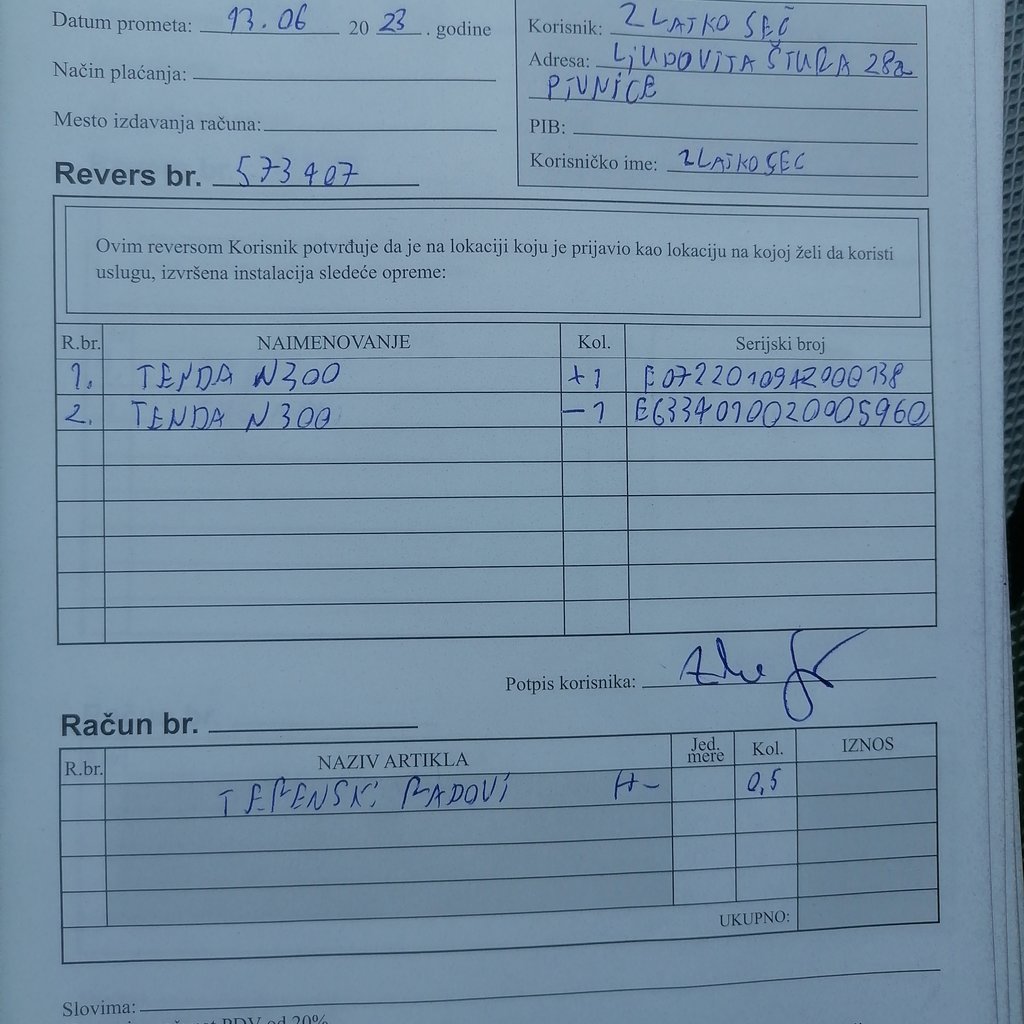 Datum prometa: 13.06 2023. godine
Način plaćanja:
Mesto izdavanja računa:
Korisnik: ZLATKO SEČ
Adresa: LJUDOVITA ŠTURA 28a
PIVNICE
PIB:
Korisničko ime: ZLATKOSEC
Revers br. 573407
Ovim reversom Korisnik potvrđuje da je na lokaciji koju je prijavio kao lokaciju na kojoj želi da koristi
uslugu, izvršena instalacija sledeće opreme:
R.br. NAIMENOVANJE Kol. Serijski broj
1. TENDA N300 +1 E0722010942000138
2. TENDA N300 -1 E6334010020005960
Potpis korisnika:
Račun br.
R.br. NAZIV ARTIKLA Jed. mere Kol. IZNOS
TERENSKI RADOVI 0,5
UKUPNO:
Slovima:
PDV od 20%